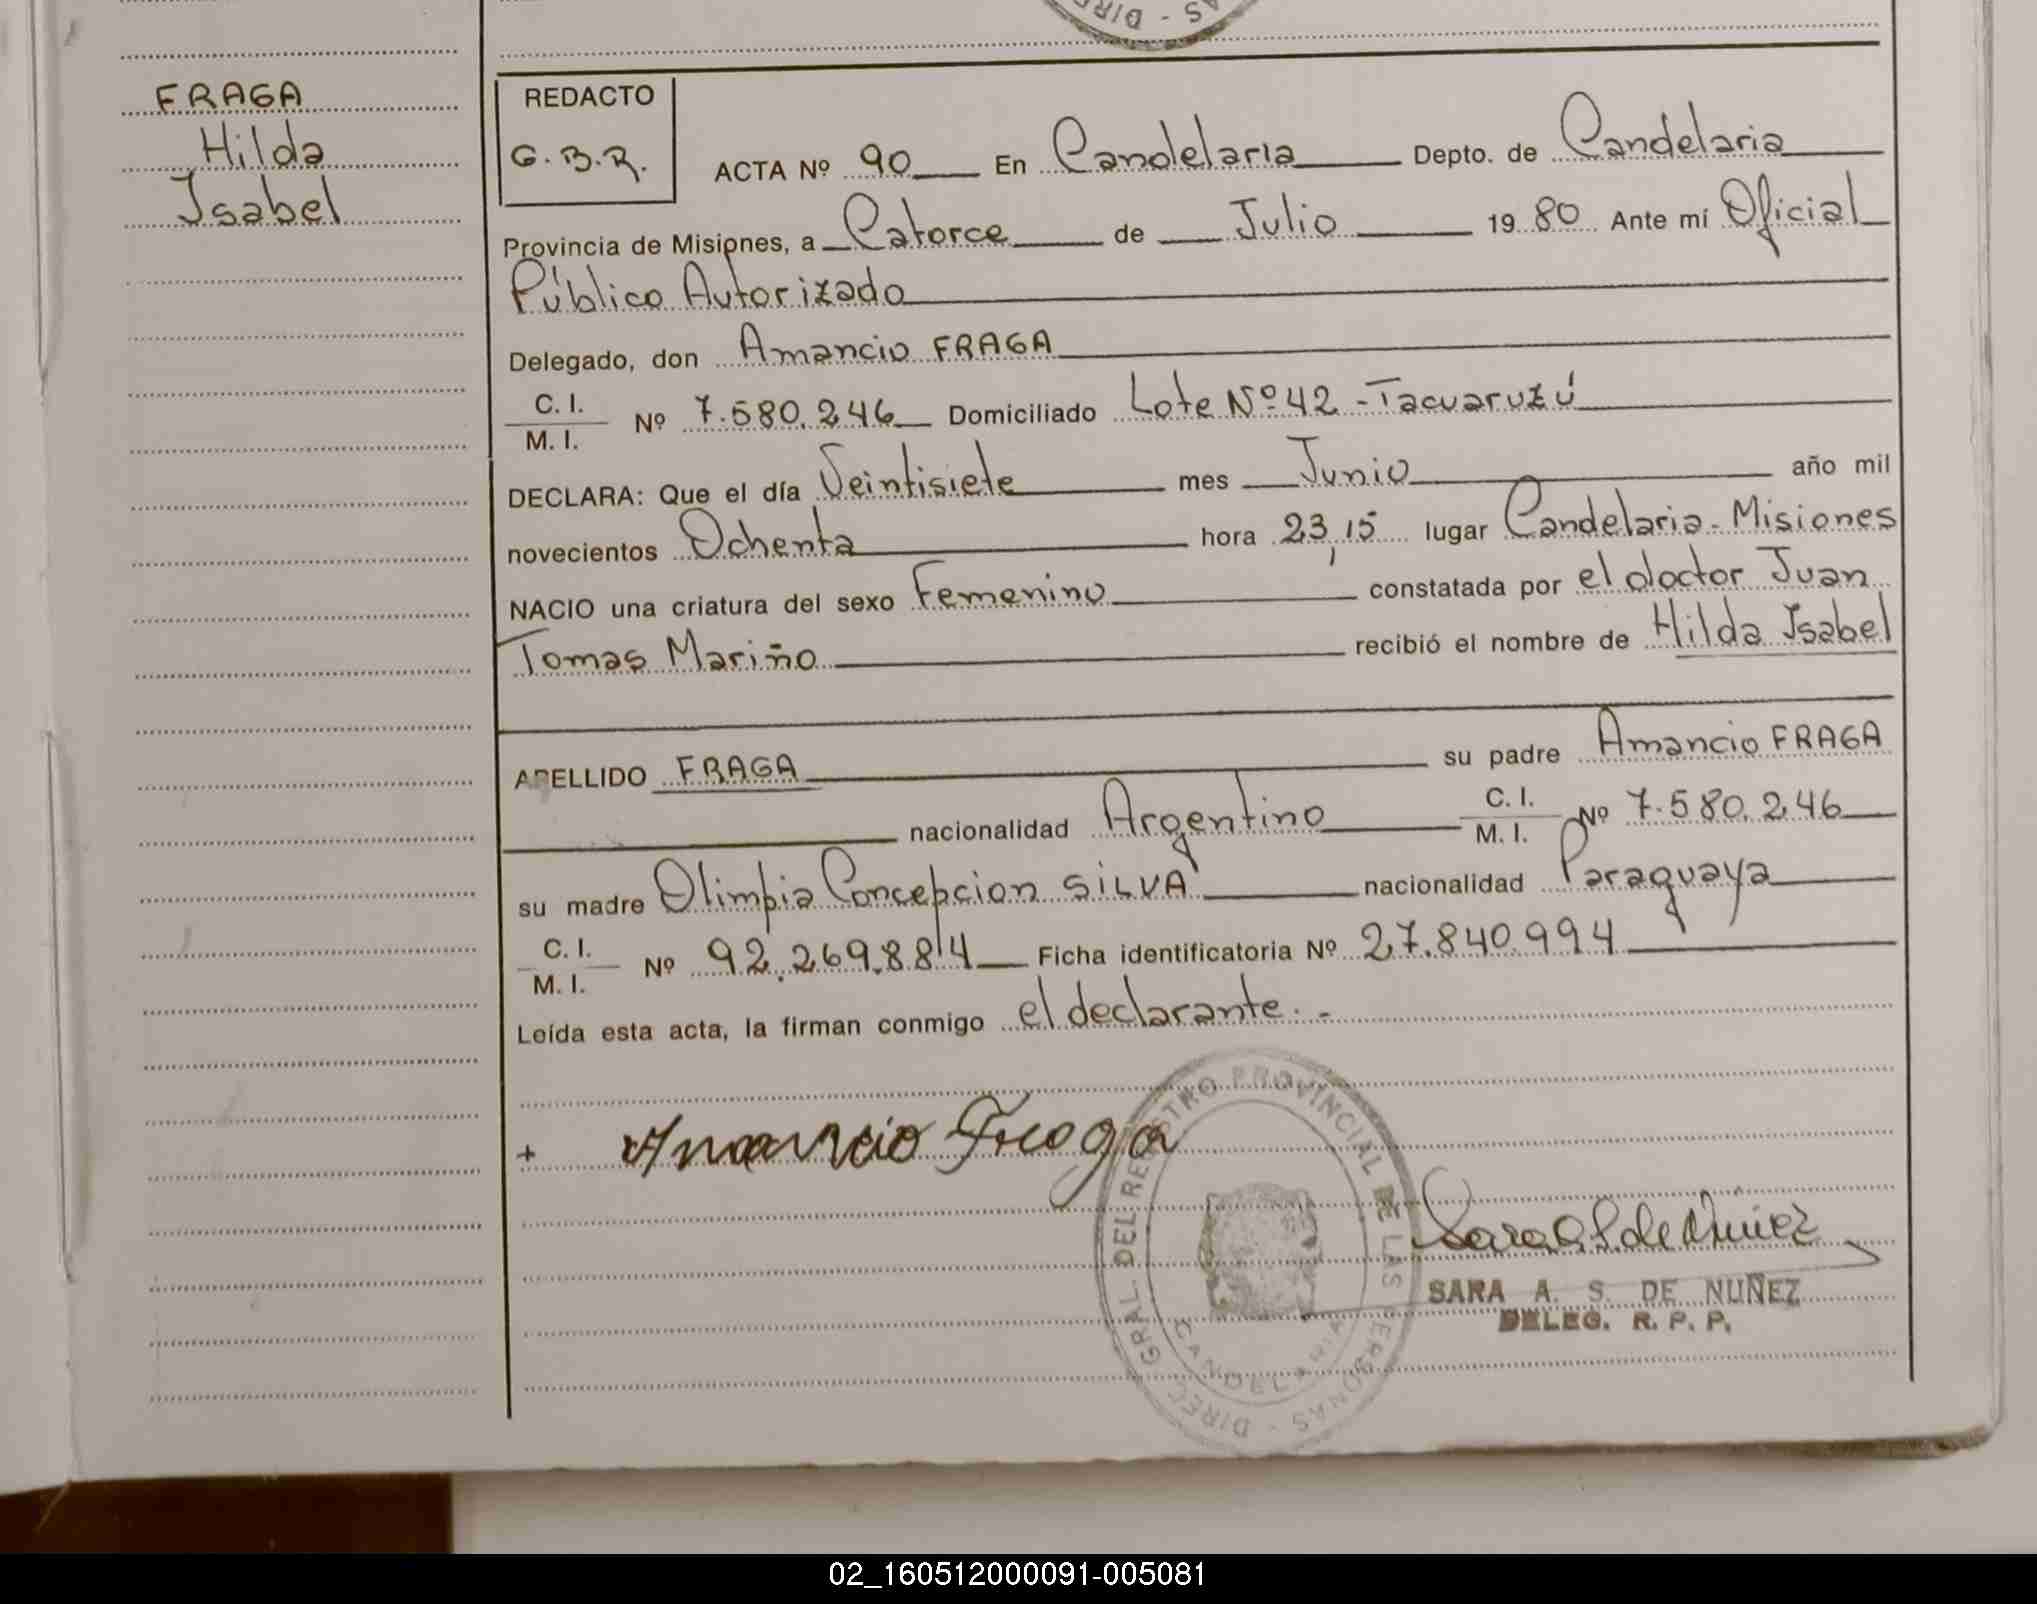 FRAGA
Hilda
Isabel
REDACTO
G.B.R.
ACTA Nº 90 En Candelaria Depto. de Candelaria
Provincia de Misiones, a Catorce de Julio 19 80 Ante mí Oficial
Público Autorizado
Delegado, don Amancio FRAGA
C. I.
M. I. Nº 7.580.246 Domiciliado Lote Nº 42 - Tacuaruzú
DECLARA: Que el día Veintisiete mes Junio año mil
novecientos Ochenta hora 23,15 lugar Candelaria - Misiones
NACIO una criatura del sexo Femenino constatada por el doctor Juan
Tomas Mariño recibió el nombre de Hilda Isabel
APELLIDO FRAGA su padre Amancio FRAGA
nacionalidad Argentino C. I.
M. I. Nº 7.580.246
su madre Olimpia Concepcion SILVA nacionalidad Paraguaya
C. I.
M. I. Nº 92.269.884 Ficha identificatoria Nº 27.840.994
Leída esta acta, la firman conmigo el declarante. -
+ Amancio Fraga
DIREC. GRAL. DEL REGISTRO PROVINCIAL DE LAS PERSONAS -
CANDELARIA
Sara A. S. de Nuñez
SARA A. S. DE NUÑEZ
DELEG. R. P. P.
02_160512000091-005081